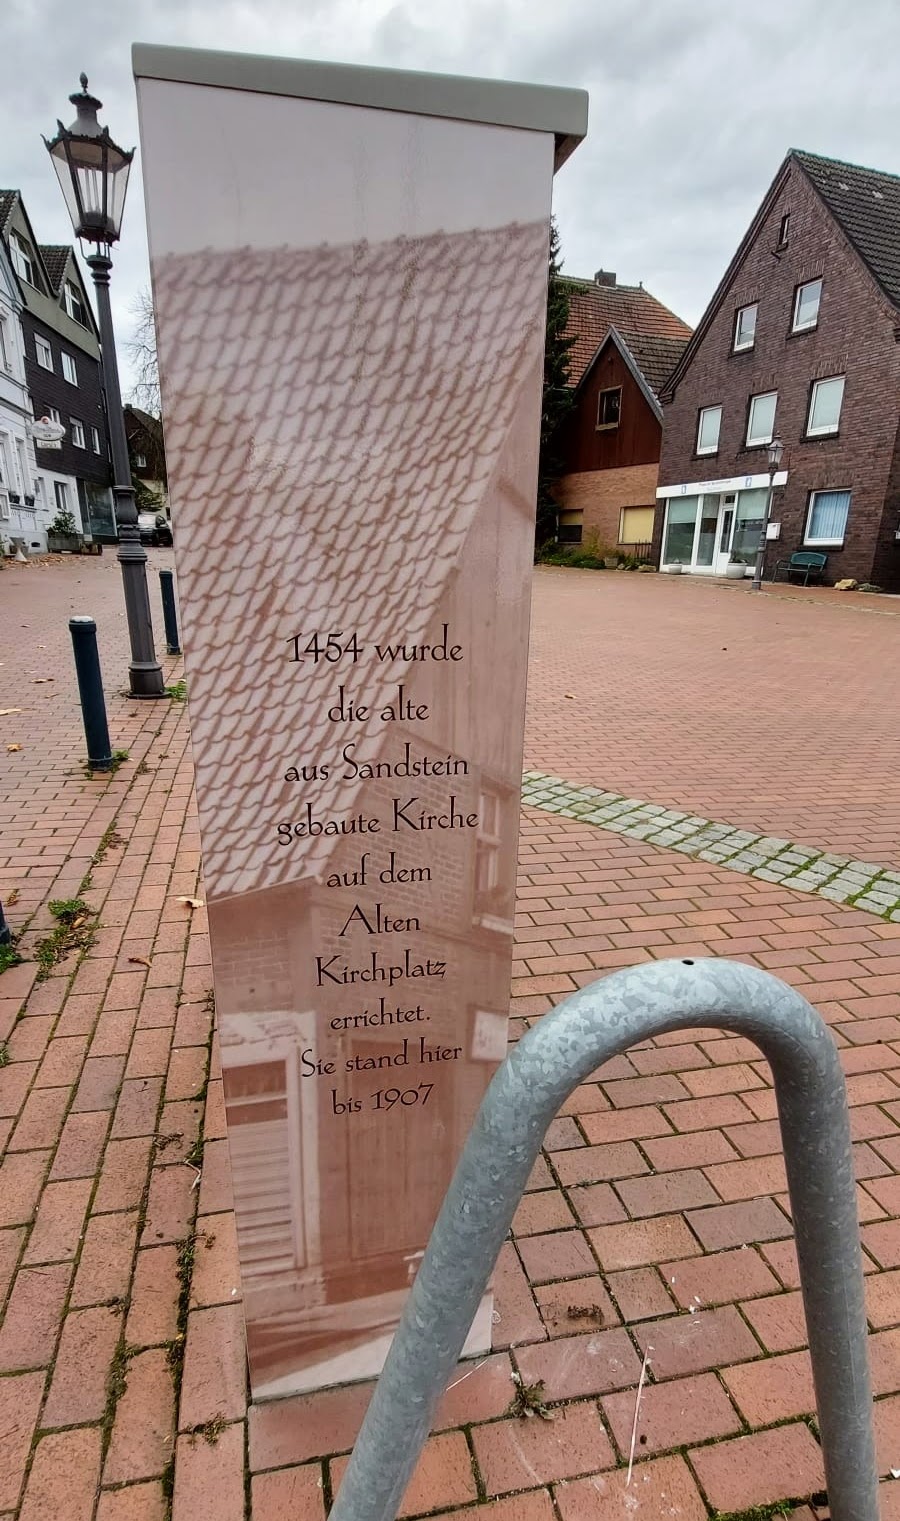 1454 wurde
die alte
aus Sandstein
gebaute Kirche
auf dem
Alten
Kirchplatz
errichtet.
Sie stand hier
bis 1907